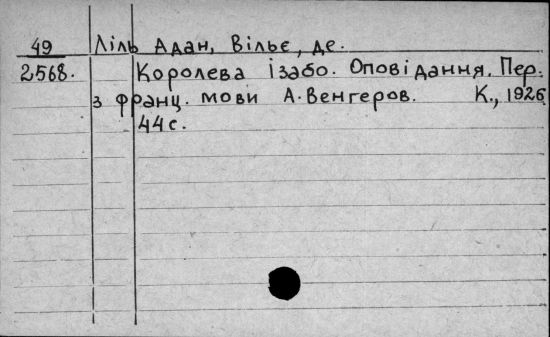 49 Ліль Адан, Вільє, де.
2568. Королева Ізабо. Оповідання. Пер.
з франц. мови А. Венгеров. К., 1926
44 с.